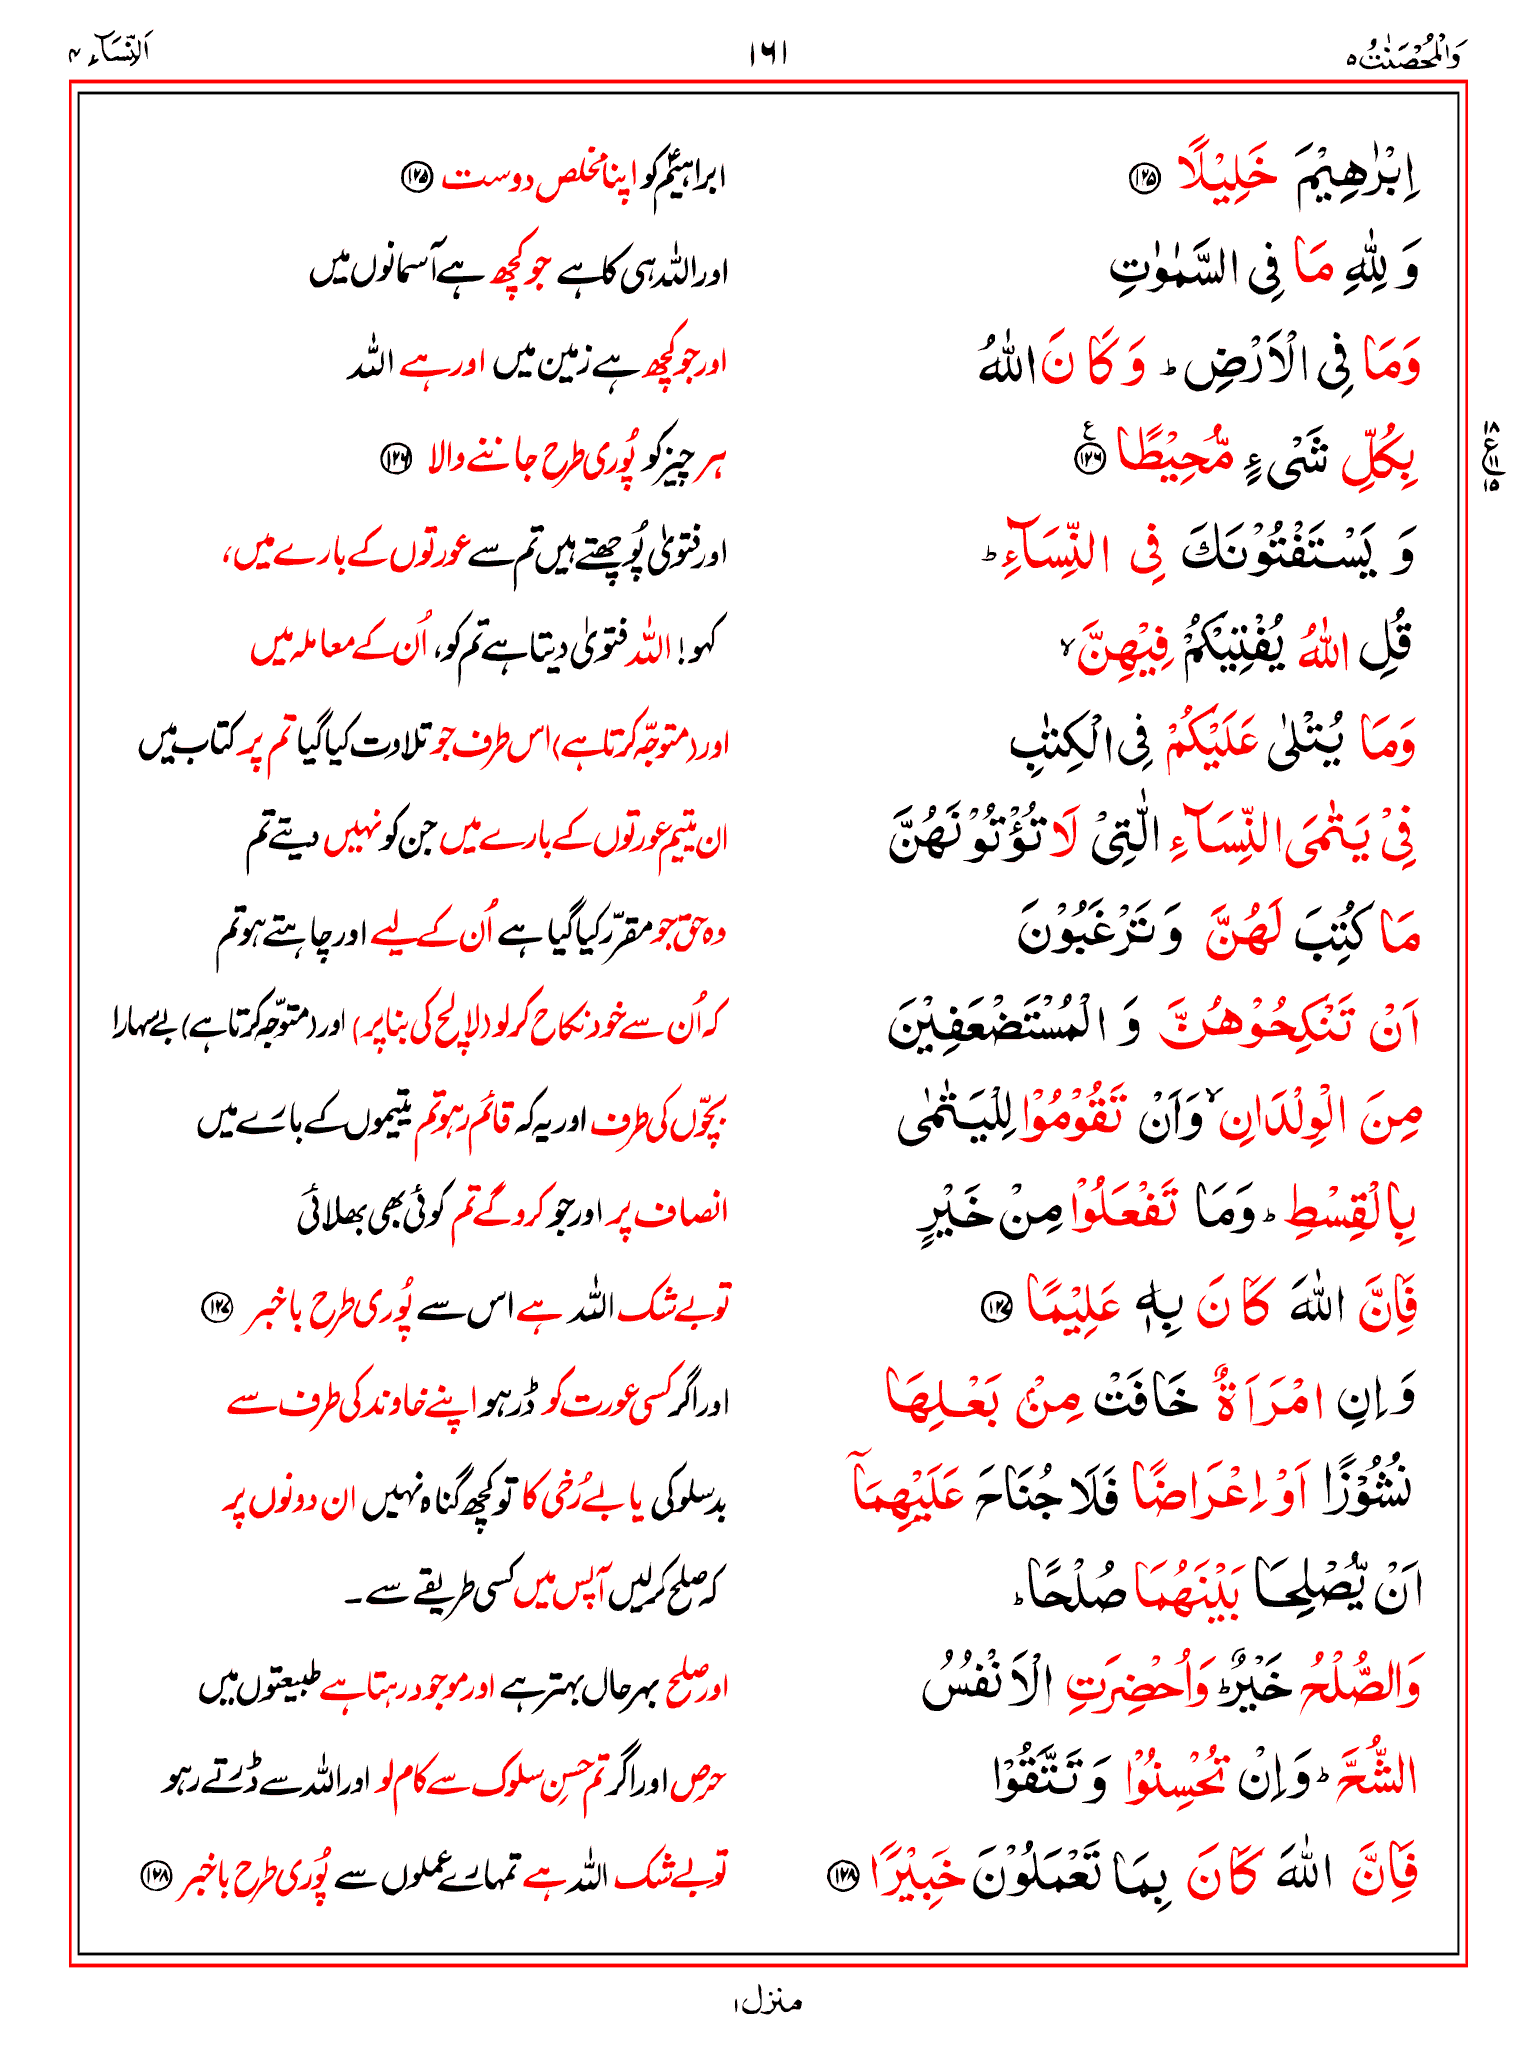 وَالْمُحْصَنٰتُ ۵ ۱۶۱ اَلنِّسَآء ۴
اِبْرٰهِيْمَ خَلِيْلًا ۝۱۲۵ ابراہیمؑ کو اپنا مخلص دوست ۝۱۲۵
وَ لِلّٰهِ مَا فِى السَّمٰوٰتِ اور اللہ ہی کا ہے جو کچھ ہے آسمانوں میں
وَمَا فِى الْاَرْضِ ؕ وَ كَانَ اللّٰهُ اور جو کچھ ہے زمین میں اور ہے اللہ
بِكُلِّ شَىْءٍ مُّحِيْطًا ۝۱۲۶ ع ہر چیز کو پُوری طرح جاننے والا ۝۱۲۶
۱۸ ع ۱۱ ۱۵
وَ يَسْتَفْتُوْنَكَ فِى النِّسَآءِ ؕ اور فتویٰ پُوچھتے ہیں تم سے عورتوں کے بارے میں،
قُلِ اللّٰهُ يُفْتِيْكُمْ فِيْهِنَّ ۙ کہو! اللہ فتویٰ دیتا ہے تم کو، اُن کے معاملہ میں
وَمَا يُتْلٰى عَلَيْكُمْ فِى الْكِتٰبِ اور (متوجّہ کرتا ہے) اس طرف جو تلاوت کیا گیا تم پر کتاب میں
فِىْ يَتٰمَى النِّسَآءِ الّٰتِىْ لَا تُؤْتُوْنَهُنَّ ان یتیم عورتوں کے بارے میں جن کو نہیں دیتے تم
مَا كُتِبَ لَهُنَّ وَ تَرْغَبُوْنَ وہ حق جو مقرّر کیا گیا ہے اُن کے لیے اور چاہتے ہو تم
اَنْ تَنْكِحُوْهُنَّ وَ الْمُسْتَضْعَفِيْنَ کہ اُن سے خود نکاح کر لو (لالچ کی بنا پر) اور (متوجّہ کرتا ہے) بے سہارا
مِنَ الْوِلْدَانِ ۙ وَاَنْ تَقُوْمُوْا لِلْيَتٰمٰى بچّوں کی طرف اور یہ کہ قائم رہو تم یتیموں کے بارے میں
بِالْقِسْطِ ؕ وَمَا تَفْعَلُوْا مِنْ خَيْرٍ انصاف پر اور جو کرو گے تم کوئی بھی بھلائی
فَاِنَّ اللّٰهَ كَانَ بِهٖ عَلِيْمًا ۝۱۲۷ تو بے شک اللہ ہے اس سے پُوری طرح باخبر ۝۱۲۷
وَ اِنِ امْرَاَةٌ خَافَتْ مِنْۢ بَعْلِهَا اور اگر کسی عورت کو ڈر ہو اپنے خاوند کی طرف سے
نُشُوْزًا اَوْ اِعْرَاضًا فَلَا جُنَاحَ عَلَيْهِمَآ بدسلوکی یا بے رُخی کا تو کچھ گناہ نہیں ان دونوں پر
اَنْ يُّصْلِحَا بَيْنَهُمَا صُلْحًا ؕ کہ صلح کر لیں آپس میں کسی طریقے سے۔
وَالصُّلْحُ خَيْرٌ ؕ وَاُحْضِرَتِ الْاَنْفُسُ اور صلح بہرحال بہتر ہے اور موجود رہتا ہے طبیعتوں میں
الشُّحَّ ؕ وَاِنْ تُحْسِنُوْا وَ تَتَّقُوْا حرص اور اگر تم حسنِ سلوک سے کام لو اور اللہ سے ڈرتے رہو
فَاِنَّ اللّٰهَ كَانَ بِمَا تَعْمَلُوْنَ خَبِيْرًا ۝۱۲۸ تو بے شک اللہ ہے تمہارے عملوں سے پُوری طرح باخبر ۝۱۲۸
منزل ۱